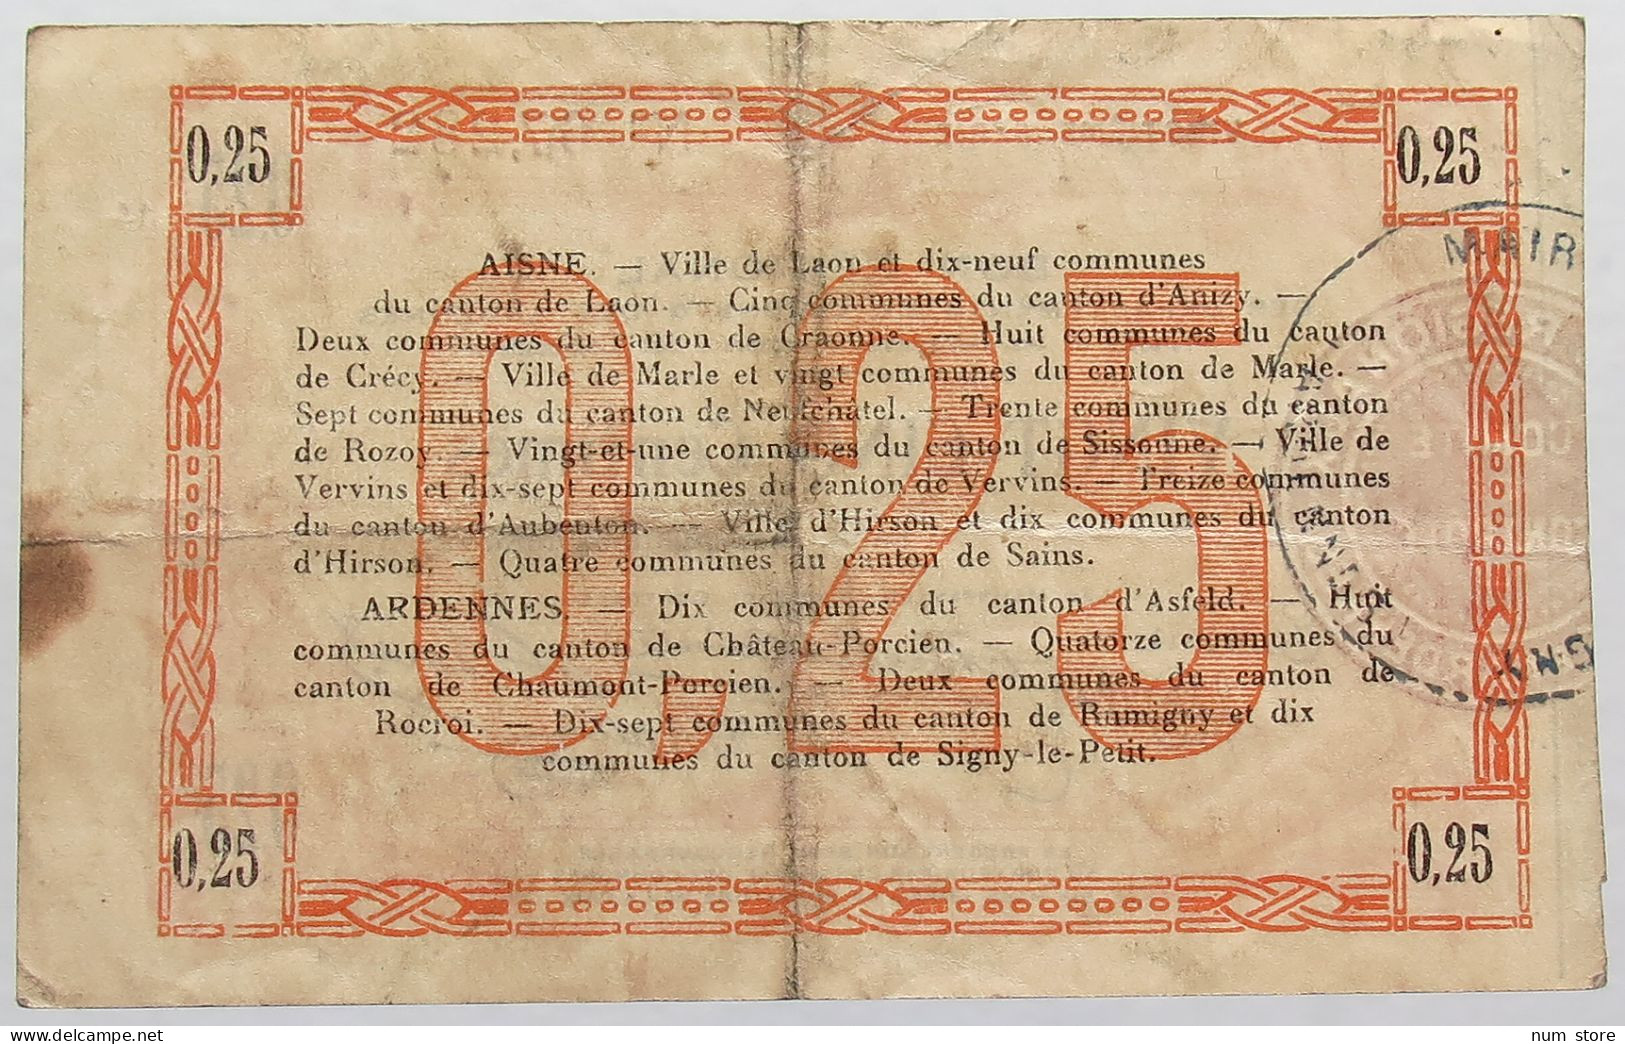 0,25
0,25
MAIR
AISNE. — Ville de Laon et dix-neuf communes
du canton de Laon. — Cinq communes du canton d'Anizy. —
Deux communes du canton de Craonne. — Huit communes du canton
de Crécy. — Ville de Marle et vingt communes du canton de Marle. —
Sept communes du canton de Neufchatel. — Trente communes du canton
de Rozoy. — Vingt-et-une communes du canton de Sissonne. — Ville de
Vervins et dix-sept communes du canton de Vervins. — Treize communes
du canton d'Aubenton. — Ville d'Hirson et dix communes du canton
d'Hirson. — Quatre communes du canton de Sains.
ARDENNES. — Dix communes du canton d'Asfeld. — Huit
communes du canton de Château-Porcien. — Quatorze communes du
canton de Chaumont-Porcien. — Deux communes du canton de
Rocroi. — Dix-sept communes du canton de Rumigny et dix
communes du canton de Signy-le-Petit.
0,25
0,25
0,25
num store
delcampe.net